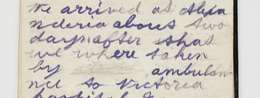 we arrived at Alexa
nderia about two
days after what
we where taken
by ambulan
ne to Victoria